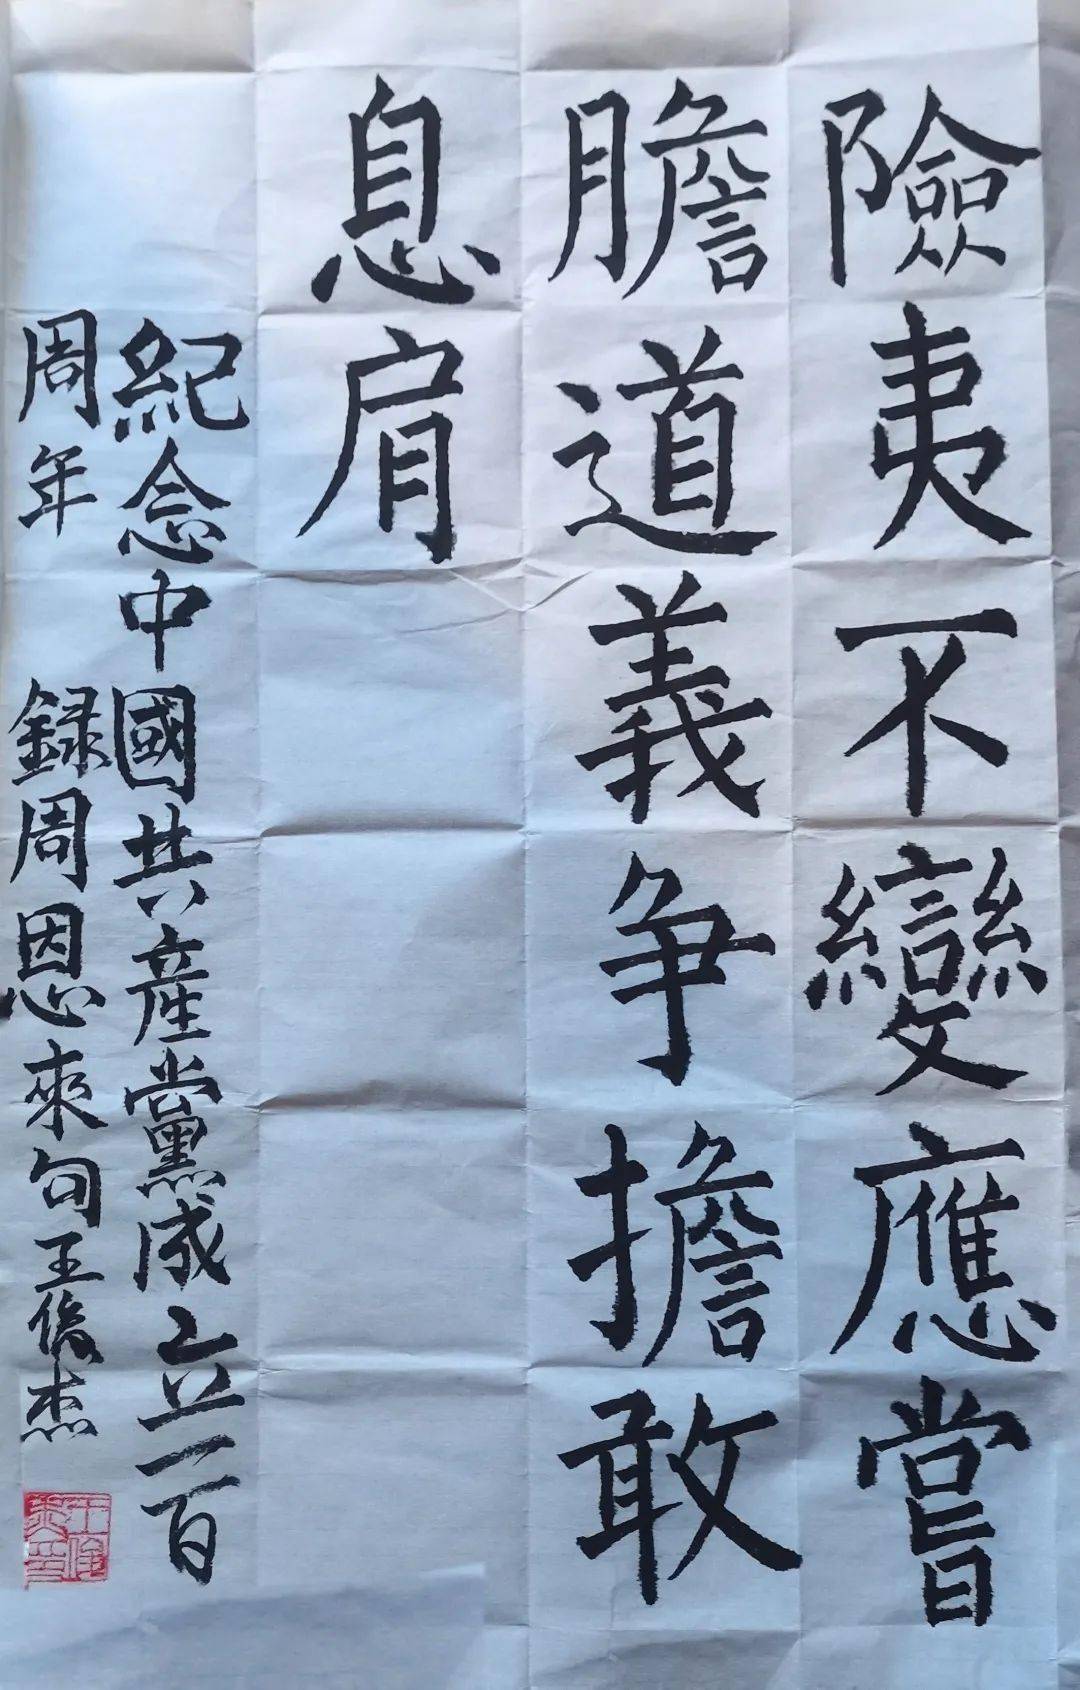 險夷不變應嘗
膽道義争擔敢
息肩
紀念中國共產黨成立一百
周年 録周恩來句王俊杰